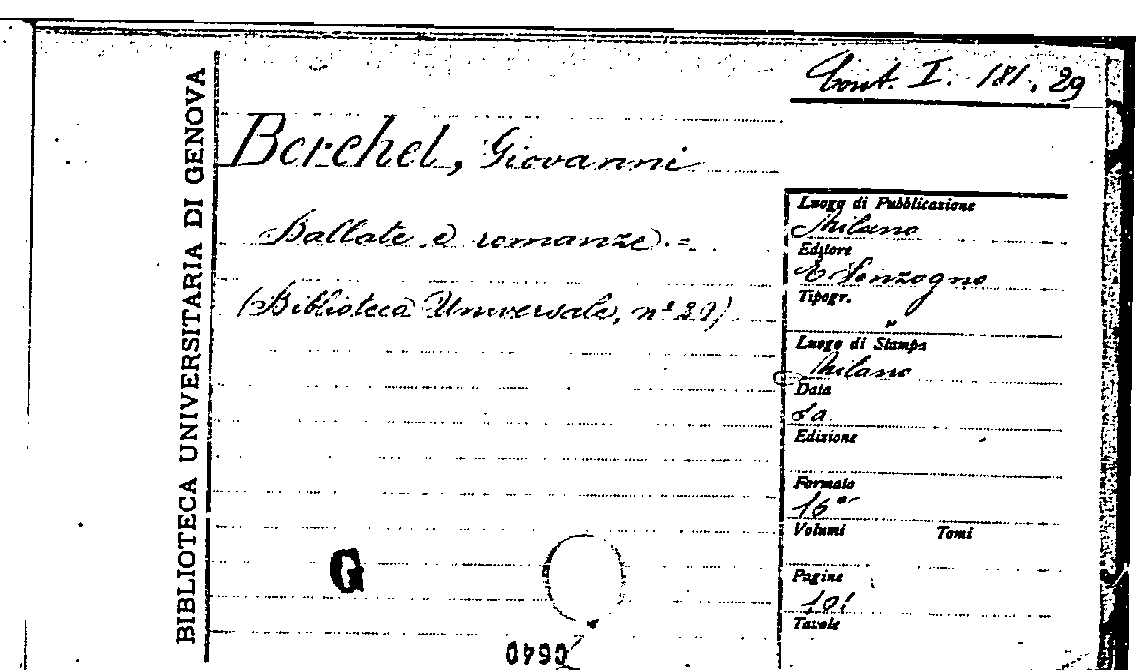 BIBLIOTECA UNIVERSITARIA DI GENOVA
Cont. I. 181. 29
Berchet, Giovanni
Ballate e romanze. =
(Biblioteca Universale, nº 29)
Luogo di Pubblicazione
Milano
Editore
E. Sonzogno
Tipogr.
"
Luogo di Stampa
Milano
Data
s.a.
Edizione
Formato
16º
Volumi Tomi
Pagine
101
Tavole
G
0640